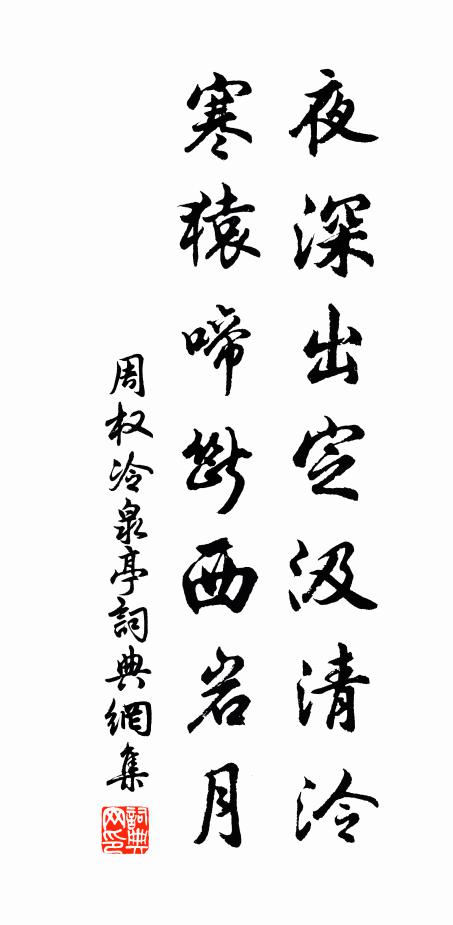 夜深出定汲清泠
寒猿啼断西岩月
周权冷泉亭詞典網集
詞典网印